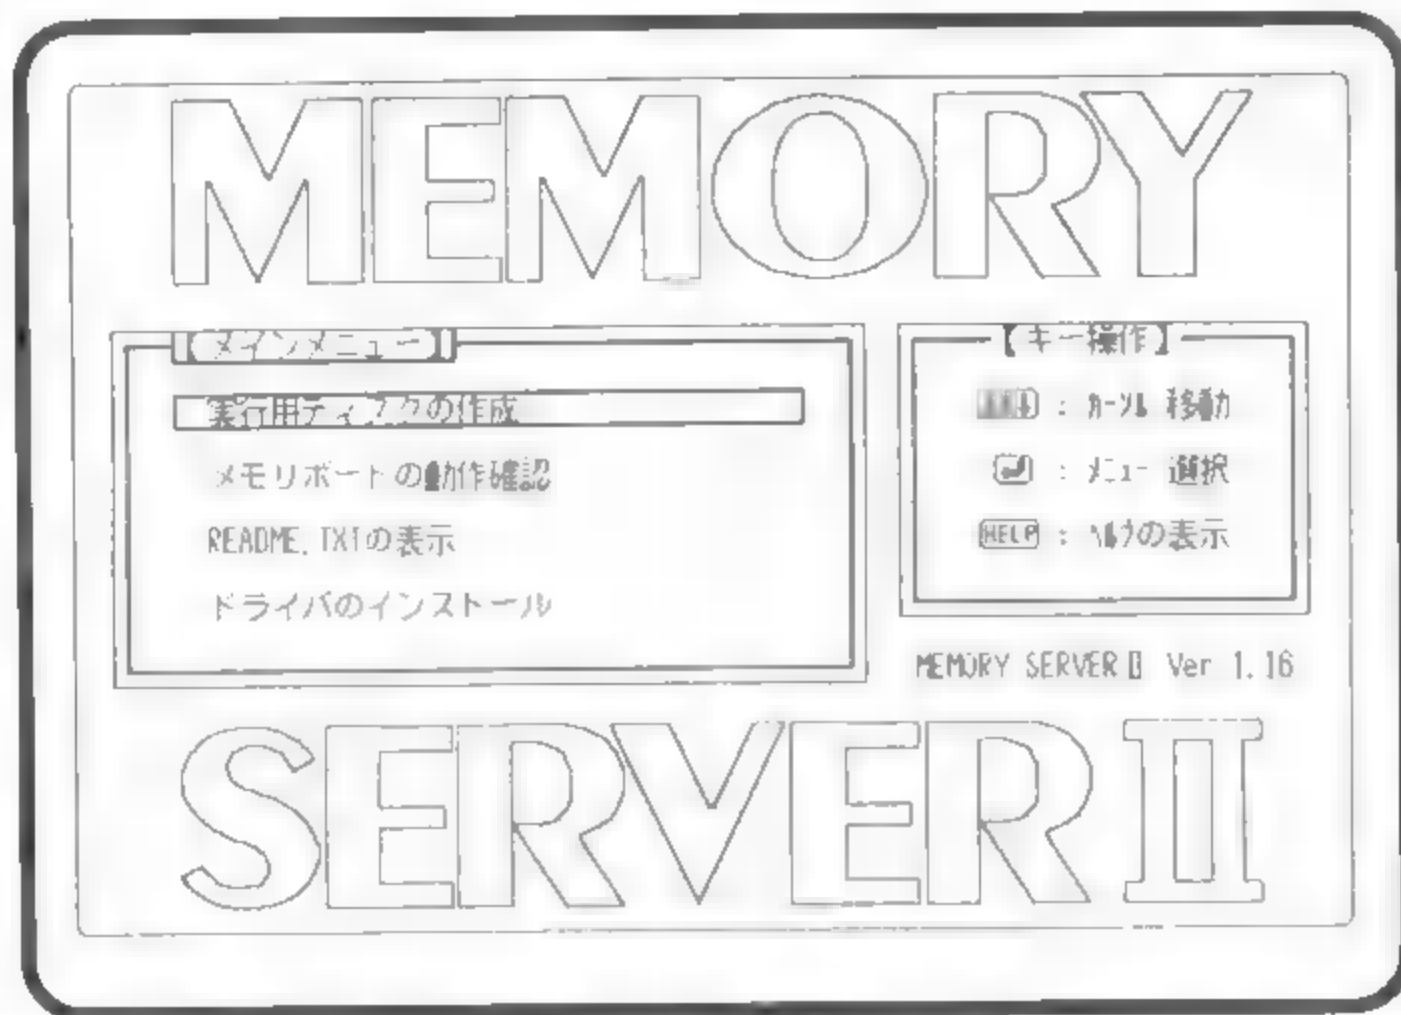 MEMORY
メインメニュー
実行用ディスクの作成
メモリボードの動作確認
README.TXTの表示
ドライバのインストール
キー操作
: カーソル 移動
: メニュー 選択
HELP : ヘルプの表示
MEMORY SERVER II Ver 1.16
SERVER II